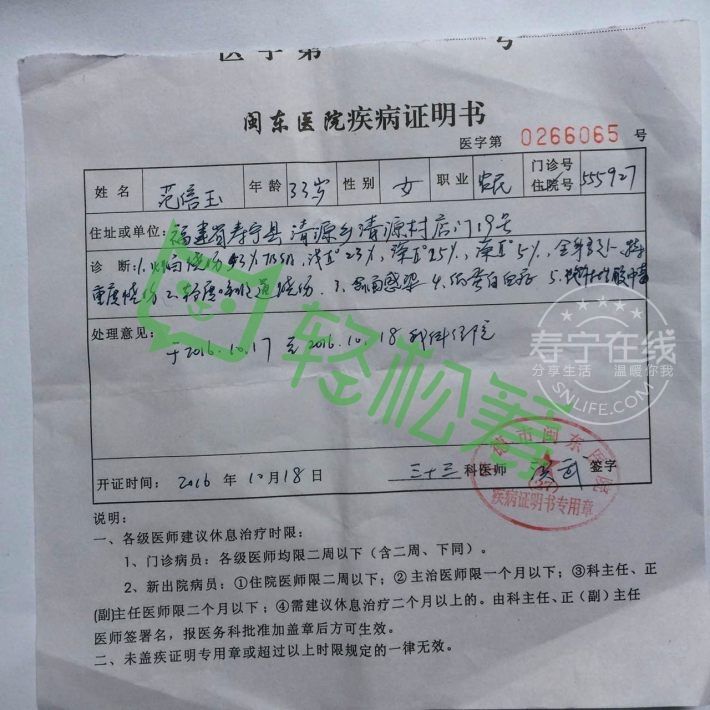 医字第 号
闽东医院疾病证明书
医字第 0266065 号
姓名 范信玉 年龄 33岁 性别 女 职业 农民 门诊号 住院号 555927
住址或单位: 福建省寿宁县清源乡清源村店门19号
诊 断: 1.火焰烧伤 43% TBSA, 浅Ⅱ° 23%, 深Ⅱ° 15%, Ⅲ° 5%, 全身多处
重度烧伤 2.轻度呼吸道烧伤 3.创面感染 4.低蛋白血症 5.代谢性酸中毒
处理意见:
于2016.10.17至2016.10.18我科住院
轻松筹
寿宁在线
分享生活 温暖你我
SNLIFE.COM
开证时间: 2016 年 10月18日 三十三科医师 签字
德市闽东医院
疾病证明书专用章
说明:
一、各级医师建议休息治疗时限:
1、门诊病员:各级医师均限二周以下(含二周、下同)。
2、新出院病员:①住院医师限二周以下;②主治医师限一个月以下;③科主任、正
(副)主任医师限二个月以下;④需建议休息治疗二个月以上的。由科主任、正(副)主任
医师签署名,报医务科批准加盖章后方可生效。
二、未盖疾证明专用章或超过以上时限规定的一律无效。